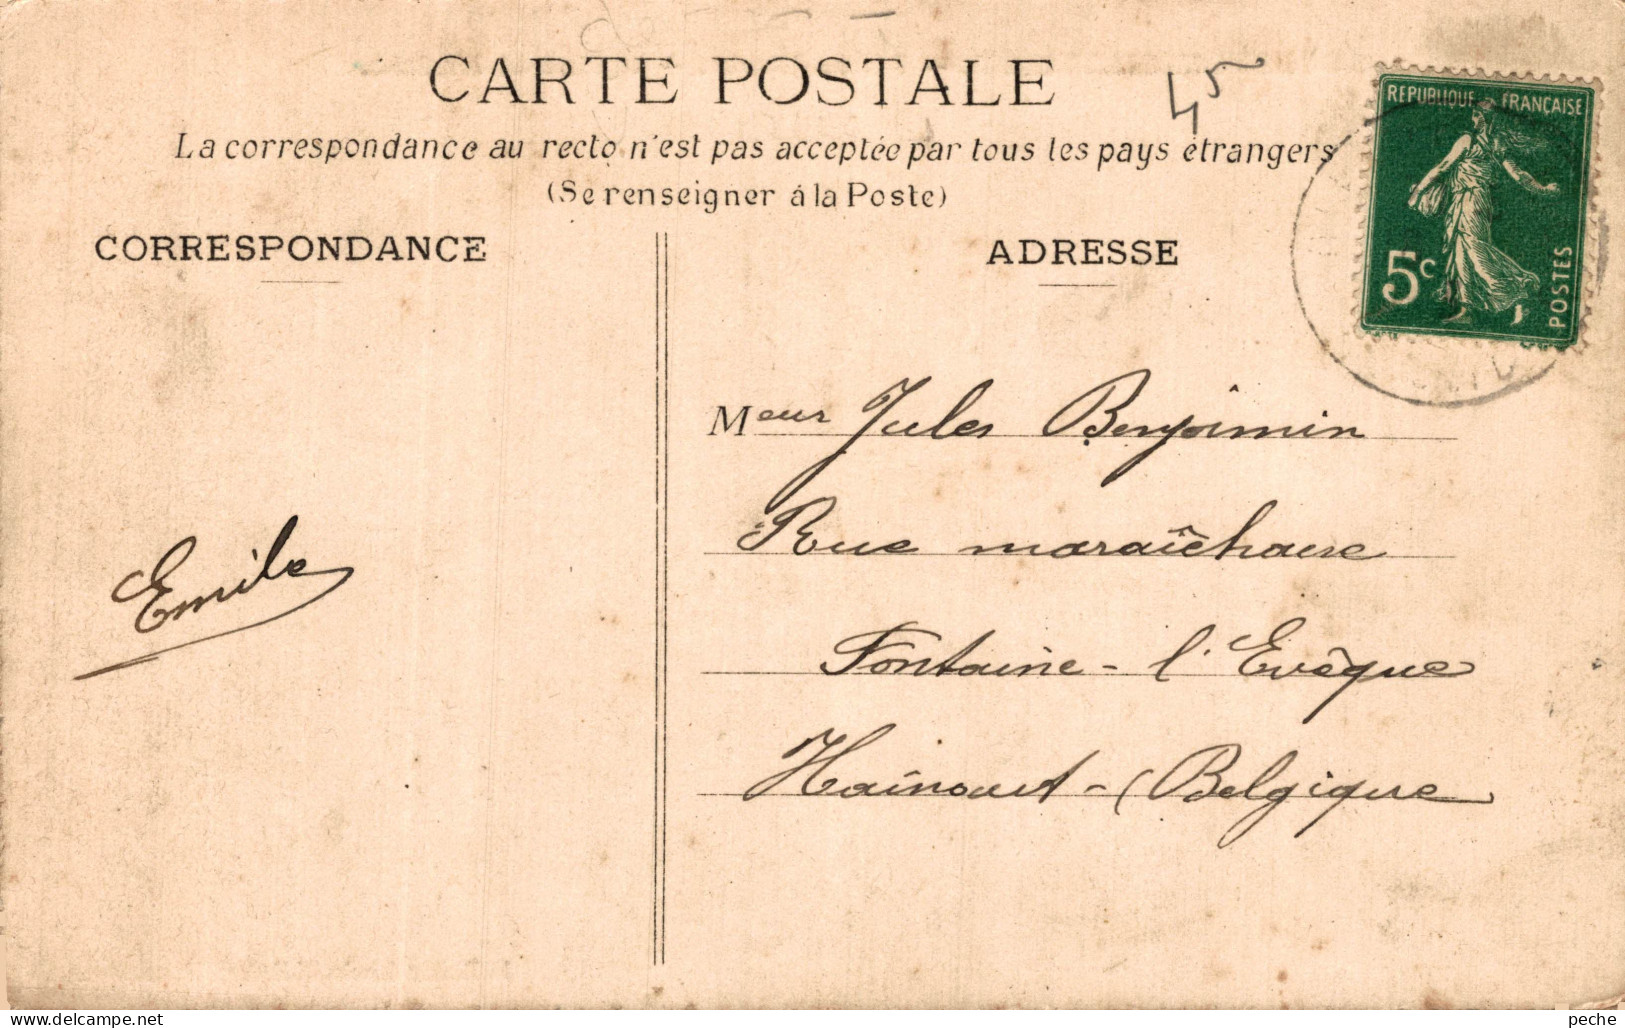 CARTE POSTALE
45
La correspondance au recto n'est pas acceptée par tous les pays étrangers
(Se renseigner à la Poste)
CORRESPONDANCE
ADRESSE
REPUBLIQUE FRANÇAISE
5c
POSTES
Meur Jules Benjoimin
Rue maraîchause
Emile
Fontaine - l'Evêque
Hainaut - (Belgique
peche